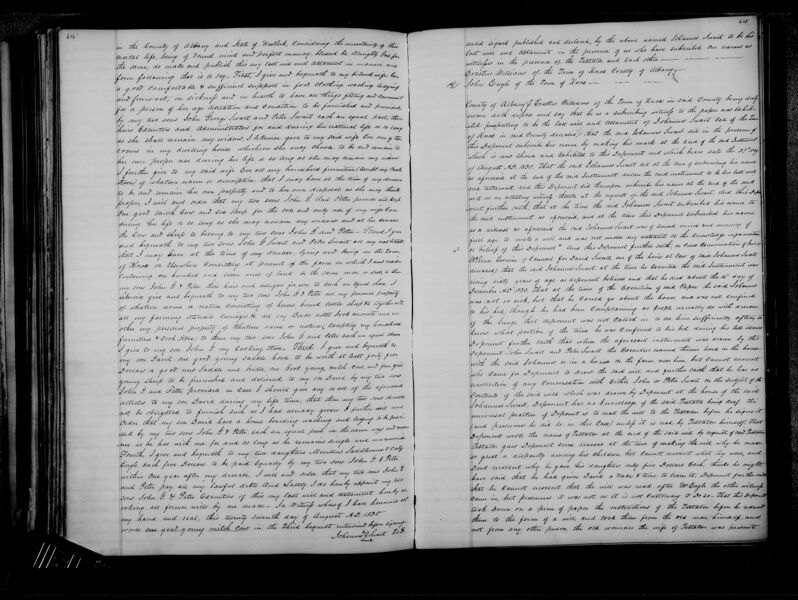 in the County of Albany and State of New York, Considering the uncertainty of this
mortal life, being of sound mind and perfect memory, blessed be Almighty God for
the same, do make and publish this my last will and testament in manner and
form following that is to say. First, I give and bequeath to my beloved wife
a good comfortable & sufficient support in food Clothing, washing lodging
and firewood, in sickness and in health to have all things fitting and
for a person of her age situation and condition to be furnished and provided
by my two sons John and Peter Swart each an equal part, then
heirs Executors and Administrators for and during her natural life or so long
as she shall remain my widow, I likewise give to my said wife One of the
rooms in my dwelling house whichever she may choose to be and remain to
her own proper use during her life or so long as she may remain my widow
I further give to my said wife all my household furniture (except my Cook
Stove) of whatever name or description, that I may have at the time of my decease
to be and remain her own property and to her own disposal as she may think
proper, I will and order that my two sons John & Peter provide and keep
One good milch Cow and Six Sheep for the sole and only use of my wife
during her life or so long as she may remain my widow and at her decease
the Cow and Sheep to belong to my two sons John and Peter – Second, I give
and bequeath to my two sons John and Peter Swart all my real Estate
that I may have at the time of my decease, lying and being in the Town
of Knox
Containing one hundred and seven acres of land be the same more or less, to them
my sons John & Peter their heirs and assigns forever to each an equal share I
likewise give and bequeath to my two sons John & Peter all my personal property
of whatever name or nature consisting of horses horned cattle sheep & together with
all my farming utensils Carriages & all my bonds notes book accounts and in
other my personal property of whatever name or nature, excepting my household
furniture & Cook Stove) to them my two sons John and Peter each an equal share
I give to my son John my Cooking Stove. Third. I give and bequeath to
my son David one good young saddle horse to be worth at least forty five
Dollars a good new Saddle and bridle, one good young milch cow and five good
young sheep to be furnished and delivered to my son David by my two sons
John and Peter, provided in Case I should give any or all of the aforesaid
articles to my son David during my life time, that then my two sons should
not be obligated to furnish such as I had already given I further will and
Order that my son David have a home boarding washing and lodging to be provi-
ded by my two sons John & Peter each an equal part in the same way and man-
ner as he has with me for and so long as he remains single and unmarried
Fourth, I give and bequeath to my two daughters
Engle each five Dollars to be paid equally by my two sons John & Peter
within One year after my decease. I will and order that my two sons John
and Peter pay all my lawful debts And lastly I do hereby appoint my two
sons John & Peter Executors of this my last will and testament hereby re-
voking all former wills by me made. In Witness whereof I have hereunto set
my hand and seal, this twenty seventh day of August A.D. 1830
words one good young milch cow in the third bequest interlined before signing
Johannes Swart L.S.
sealed signed published and declared, by the above named Johannes Swart to be his
last will and testament, in the presence of us who have subscribed our names as
witnesses in the presence of the Testator and Each other
Erastus Williams of the Town of Knox County of Albany
John Engle of the Town of Knox
County of Albany Erastus Williams of the Town of Knox in said County being duly
sworn doth depose and say that he is a subscribing witness to the paper
purporting to be the last will and testament of Johannes Swart late of the Town
of Knox in said County deceased, that the said Johannes Swart did in the presence of
this Deponent subscribe his name by making his mark at the End of the said Instrument
which is now shown and Exhibited to this Deponent and which bears date the 27th day
of August A.D. 1830. That the said Johannes Swart did at the time of subscribing his name
as aforesaid at the end of the said Instrument declare the said instrument to be his last will
and testament, and this Deponent did thereupon subscribe his name at the End of the said
will as an attesting witness thereto at the request of the said Johannes Swart. And this Depo-
nent further saith, that at the time the said Johannes Swart subscribed his name to
the said instrument as aforesaid and at the time this Deponent subscribed his name
as a witness as aforesaid the said Johannes Swart was of sound mind and memory of
full age to make a will and was not under any restraint to the knowledge information
or belief of this Deponent. And this Deponent further saith, on
of Counsel for David Swart, one of the heirs at law of said Johannes Swart
deceased) that the said Johannes Swart at the time he executed the said Instrument was
sixty years of age as deponent believes and that he died about the 10th day of
December A.D. 1830, That at the time of the Execution of said Paper the said Johannes
was not so sick, but that he Could go about the house and was not confined
to his bed, though he had been Complaining as People usually do with disease
of the lungs that deponent was not Called in to see him sufficiently often to
know what portion of the time he was Confined to his bed during his last illness
Deponent further saith that when the aforesaid instrument was drawn by this
Deponent John Swart and Peter Swart the Executors named therein lived in the house
with the said Johannes or in a house on the farm near him, but Cannot recollect
who Came for Deponent to draw the said will, and further saith that he has no
recollection of any Conversation with Either John or Peter Swart on the subject of the
Contents of the said will which was drawn by Deponent at the house of the said
Johannes Swart. Deponent has no knowledge of the said Testator being deaf the
universal practice of Deponent is to read the will to the Testator before he signs it
(and presumes he did so in this Case) unless it is read by Testator himself That
Deponent wrote the name of Testator at the End of the said will by request of said Testator
Testator gave Deponent some reasons at the time of making the will why he made
so great a disparity among his children, but Cannot recollect what they were, and
does not recollect why he gave his daughters only five Dollars Each, thinks he might
have said that he had given David a trade & time to learn it, Deponent further saith
that he Cannot recollect that the will was read after Mr Engle the other witness
Came in, but presumes it was not as it is not customary to do so. That this Deponent
took down on a piece of paper the instructions of the Testator before he
them to the form of a will and took them from the old man himself and
not from any other person, the old woman the wife of Testator was present